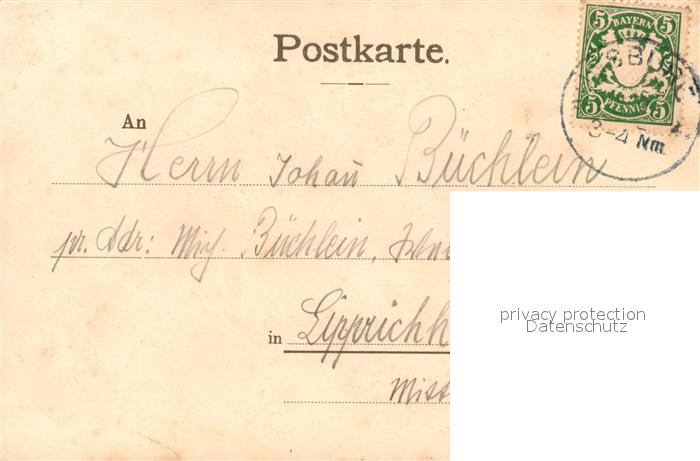 Postkarte.
5 BAYERN 5
5 PFENNIG 5
3-4 Nm.
An
Herrn Johañ Büchlein
pr. Adr: Mich. Büchlein,
in Lipprichh
privacy protection
Datenschutz